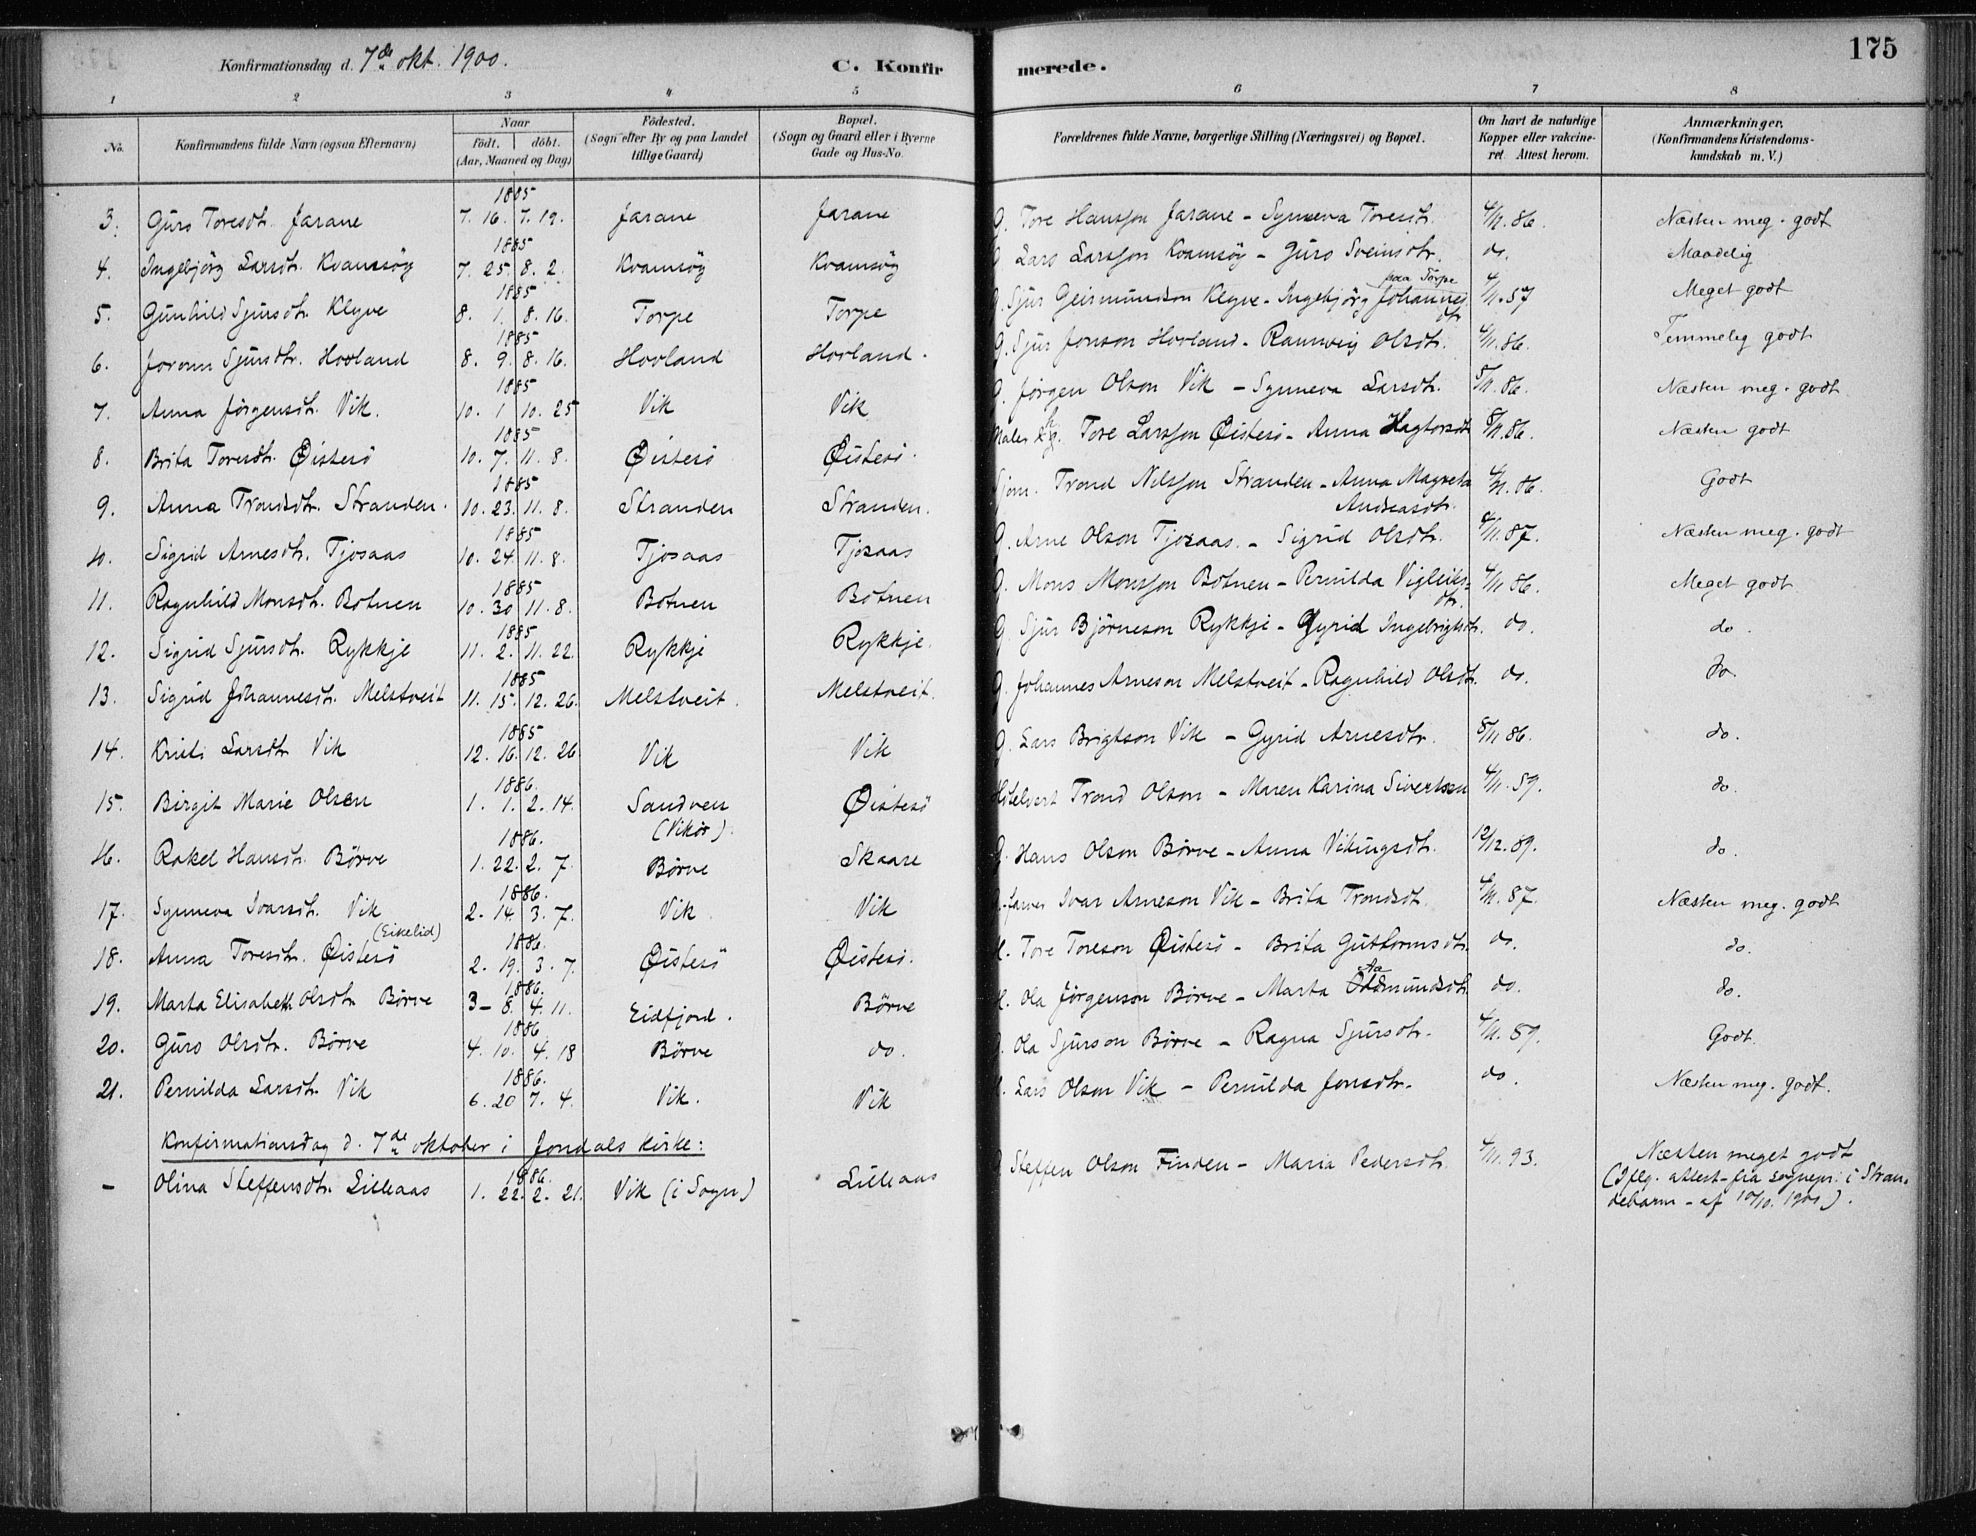 Konfirmationsdag d. 7de okt. 1900. C. Konfirmerede. 175
1 2 3 4 5 6 7 8
No. Konfirmandens fulde Navn (ogsaa Efternavn) Naar födt. döbt. (Aar, Maaned og Dag) Födested. (Sogn efter By og paa Landet tillige Gaard) Bopæl. (Sogn og Gaard eller i Byerne Gade og Hus-No. Forældrenes fulde Navne, borgerlige Stilling (Næringsvei) og Bopæl. Om havt de naturlige Kopper eller vakcineret. Attest herom. Anmærkninger. (Konfirmandens Kristendomskundskab m. V.)
1885
3. Guro Toresdtr. Jarane 7. 16. 7. 19. Jarane Jarane G. Tore Hansson Jarane - Synneva Toresdtr. 4/11. 86. Næsten meg. godt
1885
4. Ingebjörg Larsdtr. Kvamsöy 7. 25 8. 2. Kvamsöy Kvamsöy G. Lars Larsson Kvamsöy - Guro Sveinsdtr. do. Maadelig
1885 paa Torpe
5. Gunhild Sjursdtr. Klyve 8. 1. 8. 16. Torpe Torpe G. Sjur Geirmundson Klyve - Ingebjörg Johannesdtr 4/11. 87 Meget godt
1885
6. Joronn Sjursdtr. Hovland 8. 9. 8. 16. Hovland Hovland. G. Sjur Jonson Hovland - Rannveig Olsdtr. 4/11. 86. Temmeleg godt
1885
7. Anna Jörgensdtr. Vik. 10. 1 10. 25 Vik Vik G. Jörgen Olson Vik - Synneva Larsdtr. 5/11. 86. Næsten meg. godt
1885
8. Brita Toresdtr. Øistesö 10. 7. 11. 8. Øistesö Øistesö. Maler Tore Larsson Øistesö - Anna Hagtorsdtr 8/11. 86. Næsten godt
1885
9. Anna Trondsdtr. Stranden. 10. 23. 11. 8. Stranden Stranden. Sjøm. Trond Nilsson Stranden - Anna Magreta Andreasdtr. 4/11. 86. Godt
1885
10. Sigrid Arnesdtr. Tjosaas 10. 24. 11. 8. Tjosaas Tjosaas G. Arne Olson Tjosaas. - Sigrid Olsdtr. 4/11. 87. Næsten meg. godt
1885
11. Ragnhild Monsdtr. Botnen 10. 30 11. 8. Botnen Botnen G. Mons Monsson Botnen - Pernilda Vigleiksdtr. 4/11 86. Meget godt
1885
12. Sigrid Sjursdtr. Rykkje 11. 2. 11. 22. Rykkje Rykkje. G. Sjur Björneson Rykkje - Gyrid Ingebrigtsdtr. do. do.
1885
13. Sigrid Johannesdtr. Melstveit 11. 15. 12. 26. Melstveit. Melstveit. G. Johannes Arneson Melstveit - Ragnhild Olsdtr. do. do.
1885
14. Kristi Larsdtr Vik 12. 16. 12. 26 Vik Vik G. Lars Brigtson Vik - Gyrid Arnesdtr. 8/11 86. do.
1886.
15. Birgit Marie Olsen 1. 1. 2. 14. Sandven (Vikör). Øistesö Hotelvert Trond Olson - Maren Karina Sivertsen 4/11. 89. do.
1886.
16. Rakel Hansdtr. Börve 1. 22. 2. 7. Börve Skaare G. Hans Olson Börve - Anna Vikingsdtr. 12/12. 89. do.
1886.
17. Synneva Ivarsdtr. Vik 2. 14. 3. 7. Vik Vik Ivar Arneson Vik - Brita Trondsdtr. 4/11. 87. Næsten meg. godt
(Eikelid) 1886.
18. Anna Toresdtr. Øistesö 2. 19. 3. 7. Øistesö Øistesö. H. Tore Toreson Øistesö - Brita Guttormsdtr. do. do.
1886.
19. Marta Elisabeth Olsdtr. Börve 3 - 8. 4. 11. Eidfjord. Börve H. Ola Jörgenson Börve - Marta Aamundsdtr. do. do.
1886
20. Guro Olsdtr. Börve 4. 10. 4. 18 Börve do. G. Ola Sjurson Börve - Ragna Sjursdtr. 4/11. 89. Godt.
1886.
21. Pernilda Larsdtr. Vik 6. 20 7. 4. Vik. Vik H. Lars Olson Vik - Pernilda Jonsdtr. do. Næsten meg. godt.
Konfirmationsdag d. 7de oktober i Jondals kirke:
1886.
- Olina Steffensdtr. Lilleaas 1. 22. 2. 21. Vik (i Sogn) Lilleaas G. Steffen Olson Finden - Maria Pedersdtr. 4/11. 93. Næsten meget godt
(Iflg. attest fra sognepr. i Stran-
debarm - af 10/10. 1900).